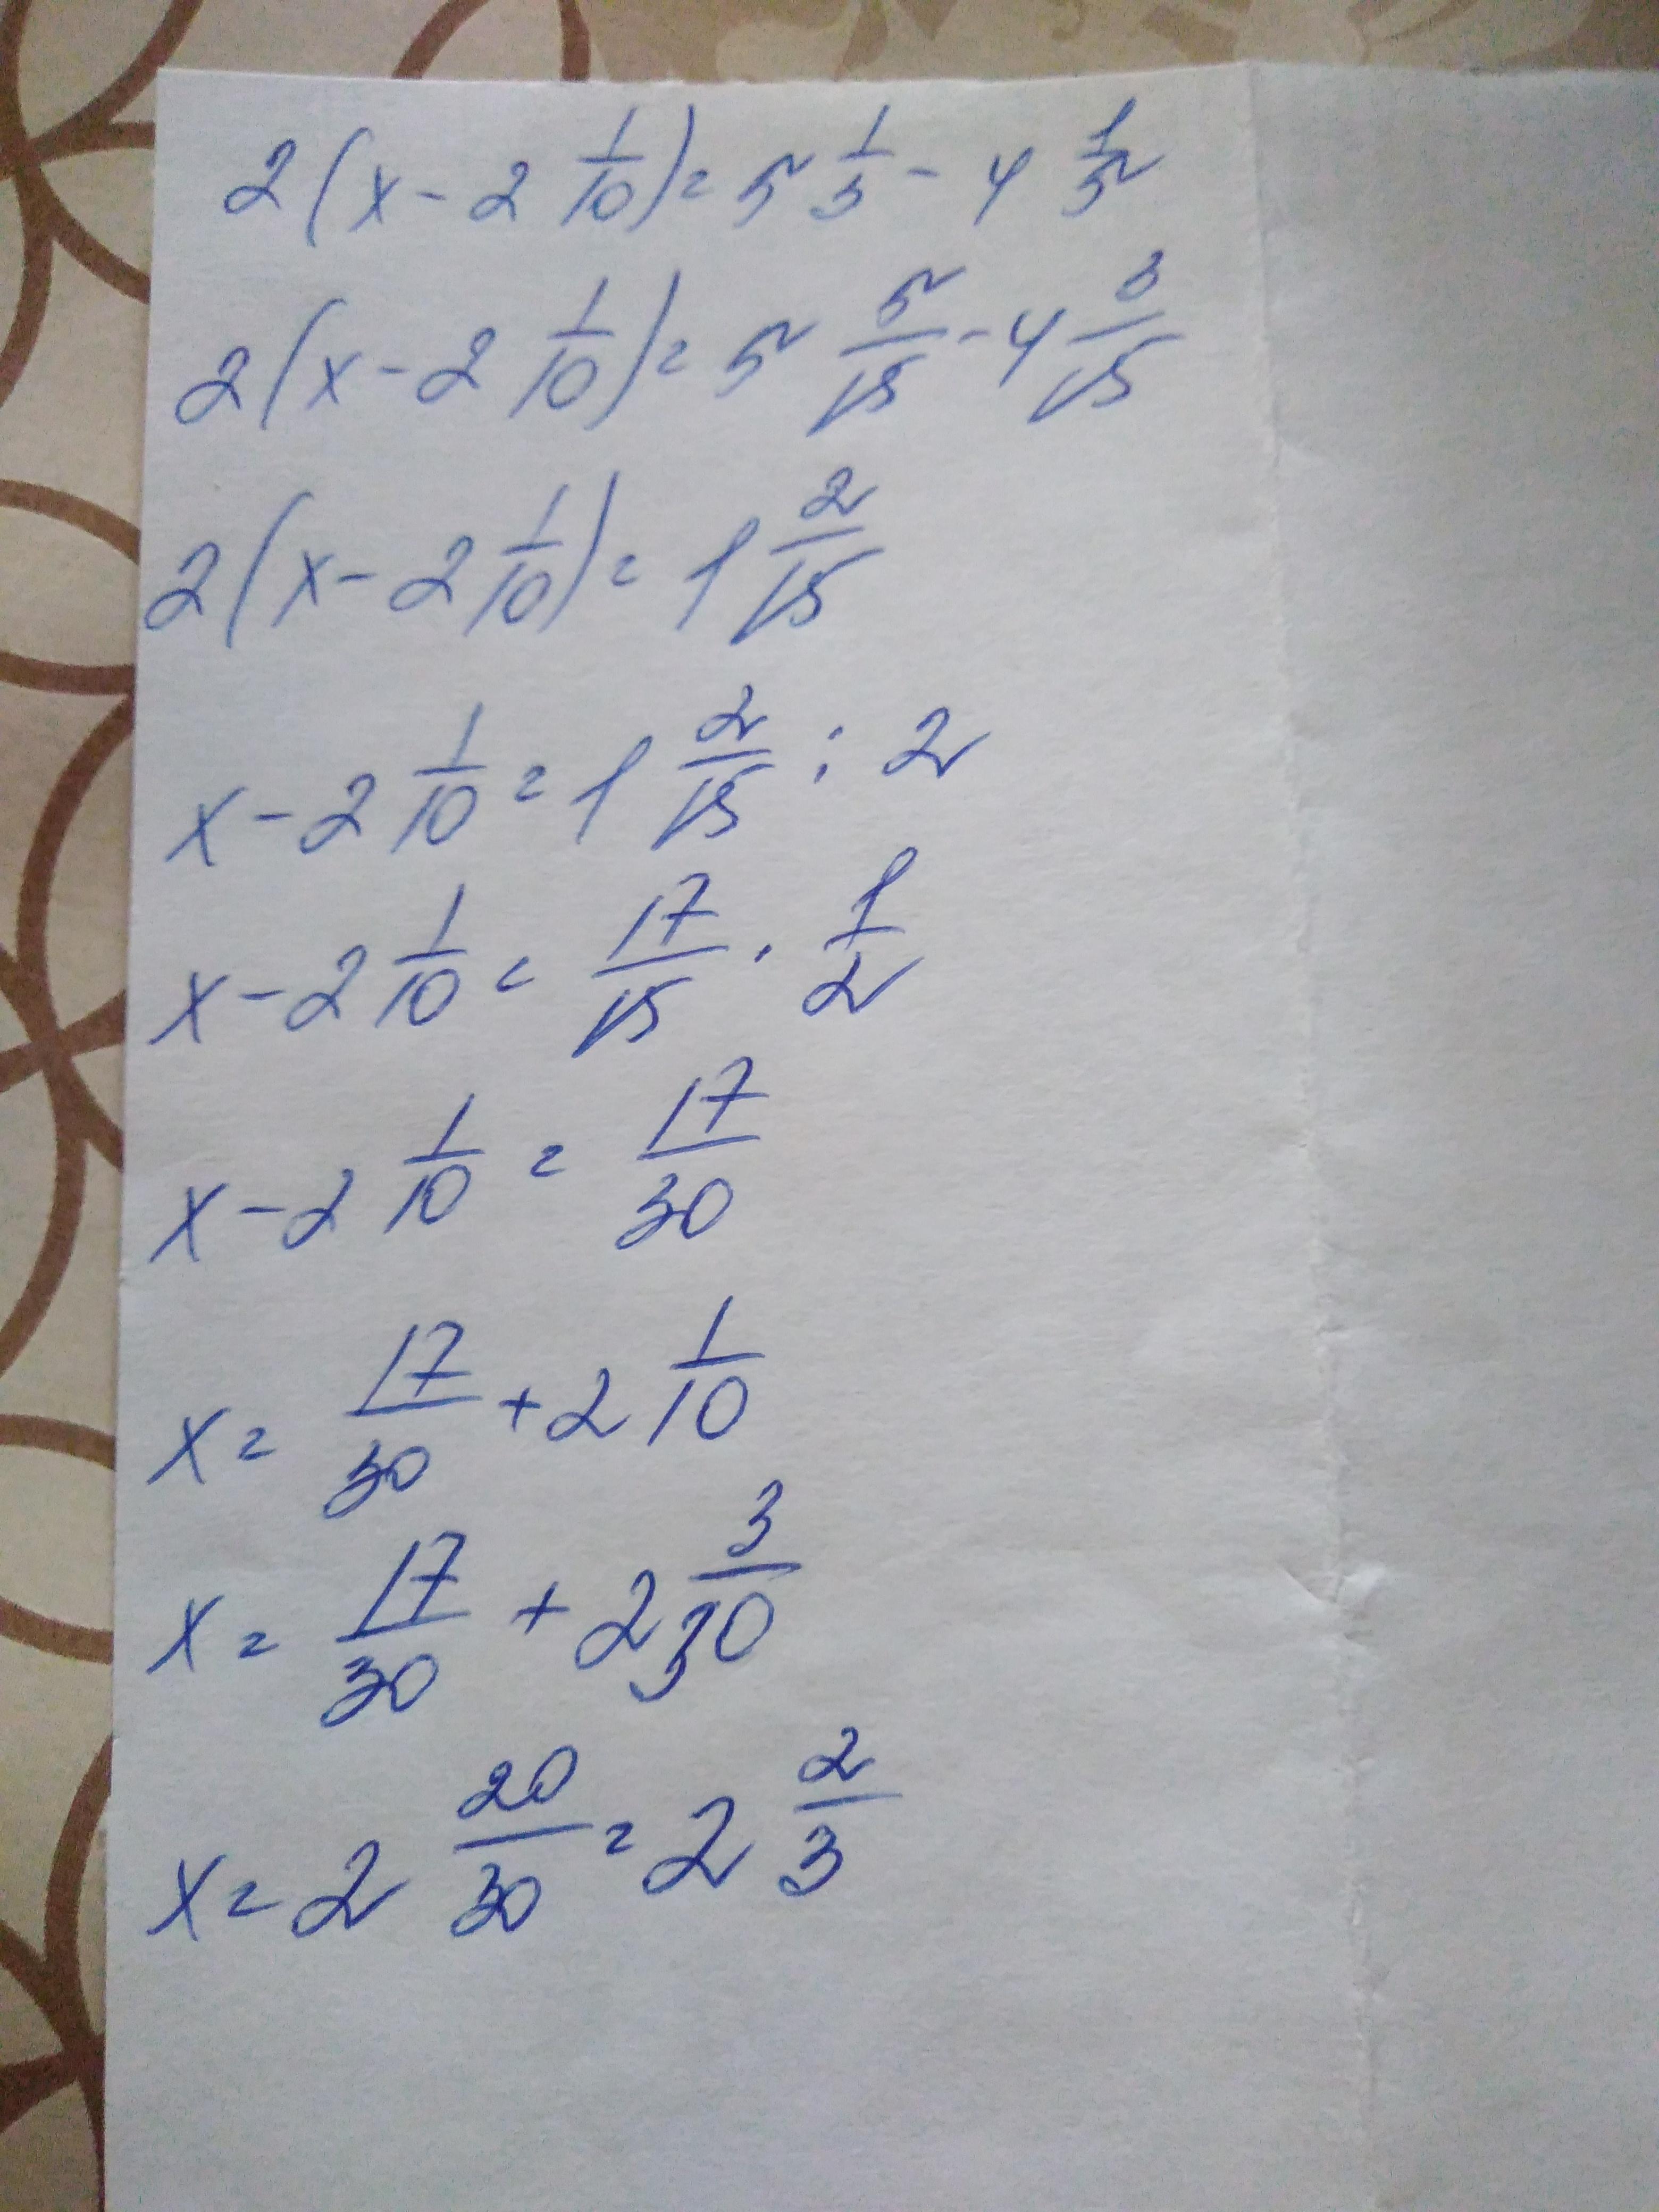 2(x - 2 1/10) = 5 1/3 - 4 1/5
2(x - 2 1/10) = 5 5/15 - 4 3/15
2(x - 2 1/10) = 1 2/15
x - 2 1/10 = 1 2/15 : 2
x - 2 1/10 = 17/15 · 1/2
x - 2 1/10 = 17/30
x = 17/30 + 2 1/10
x = 17/30 + 2 3/30
x = 2 20/30 = 2 2/3